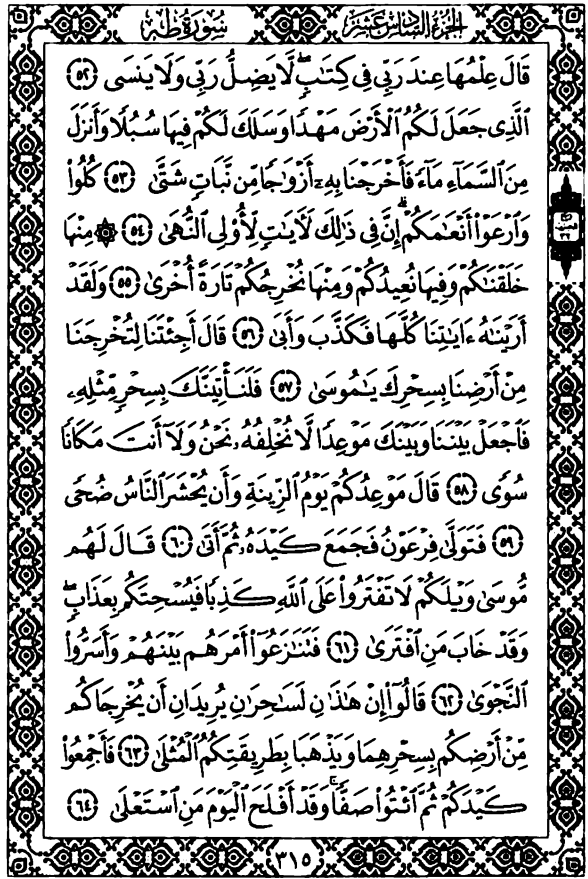 الجزء السادس عشر سورة طه
قَالَ عِلْمُهَا عِندَ رَبِّى فِى كِتَٰبٍ لَّا يَضِلُّ رَبِّى وَلَا يَنسَى ۝٥٢
الَّذِى جَعَلَ لَكُمُ الْأَرْضَ مَهْدًا وَسَلَكَ لَكُمْ فِيهَا سُبُلًا وَأَنزَلَ
مِنَ السَّمَآءِ مَآءً فَأَخْرَجْنَا بِهِۦٓ أَزْوَٰجًا مِّن نَّبَاتٍ شَتَّىٰ ۝٥٣ كُلُوا۟
وَارْعَوْا۟ أَنْعَٰمَكُمْ ۗ إِنَّ فِى ذَٰلِكَ لَءَايَٰتٍ لِّأُو۟لِى النُّهَىٰ ۝٥٤ ۞ مِنْهَا
خَلَقْنَٰكُمْ وَفِيهَا نُعِيدُكُمْ وَمِنْهَا نُخْرِجُكُمْ تَارَةً أُخْرَىٰ ۝٥٥ وَلَقَدْ
أَرَيْنَٰهُ ءَايَٰتِنَا كُلَّهَا فَكَذَّبَ وَأَبَىٰ ۝٥٦ قَالَ أَجِئْتَنَا لِتُخْرِجَنَا
مِنْ أَرْضِنَا بِسِحْرِكَ يَٰمُوسَىٰ ۝٥٧ فَلَنَأْتِيَنَّكَ بِسِحْرٍ مِّثْلِهِۦ
فَاجْعَلْ بَيْنَنَا وَبَيْنَكَ مَوْعِدًا لَّا نُخْلِفُهُۥ نَحْنُ وَلَآ أَنتَ مَكَانًا
سُوًى ۝٥٨ قَالَ مَوْعِدُكُمْ يَوْمُ الزِّينَةِ وَأَن يُحْشَرَ النَّاسُ ضُحًى
۝٥٩ فَتَوَلَّىٰ فِرْعَوْنُ فَجَمَعَ كَيْدَهُۥ ثُمَّ أَتَىٰ ۝٦٠ قَالَ لَهُم
مُّوسَىٰ وَيْلَكُمْ لَا تَفْتَرُوا۟ عَلَى اللَّهِ كَذِبًا فَيُسْحِتَكُم بِعَذَابٍ ۖ
وَقَدْ خَابَ مَنِ افْتَرَىٰ ۝٦١ فَتَنَٰزَعُوٓا۟ أَمْرَهُم بَيْنَهُمْ وَأَسَرُّوا۟
النَّجْوَىٰ ۝٦٢ قَالُوٓا۟ إِنْ هَٰذَٰنِ لَسَٰحِرَٰنِ يُرِيدَانِ أَن يُخْرِجَاكُم
مِّنْ أَرْضِكُم بِسِحْرِهِمَا وَيَذْهَبَا بِطَرِيقَتِكُمُ الْمُثْلَىٰ ۝٦٣ فَأَجْمِعُوا۟
كَيْدَكُمْ ثُمَّ ائْتُوا۟ صَفًّا ۚ وَقَدْ أَفْلَحَ الْيَوْمَ مَنِ اسْتَعْلَىٰ ۝٦٤
٣١٥